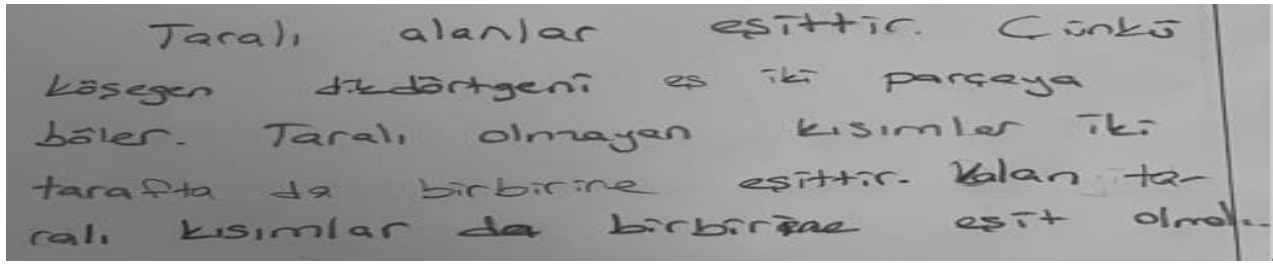 Taralı alanlar eşittir. Çünkü
köşegen dikdörtgeni eş iki parçaya
böler. Taralı olmayan kısımlar iki
tarafta da birbirine eşittir. Kalan ta-
ralı kısımlar da birbirine eşit olmalı.